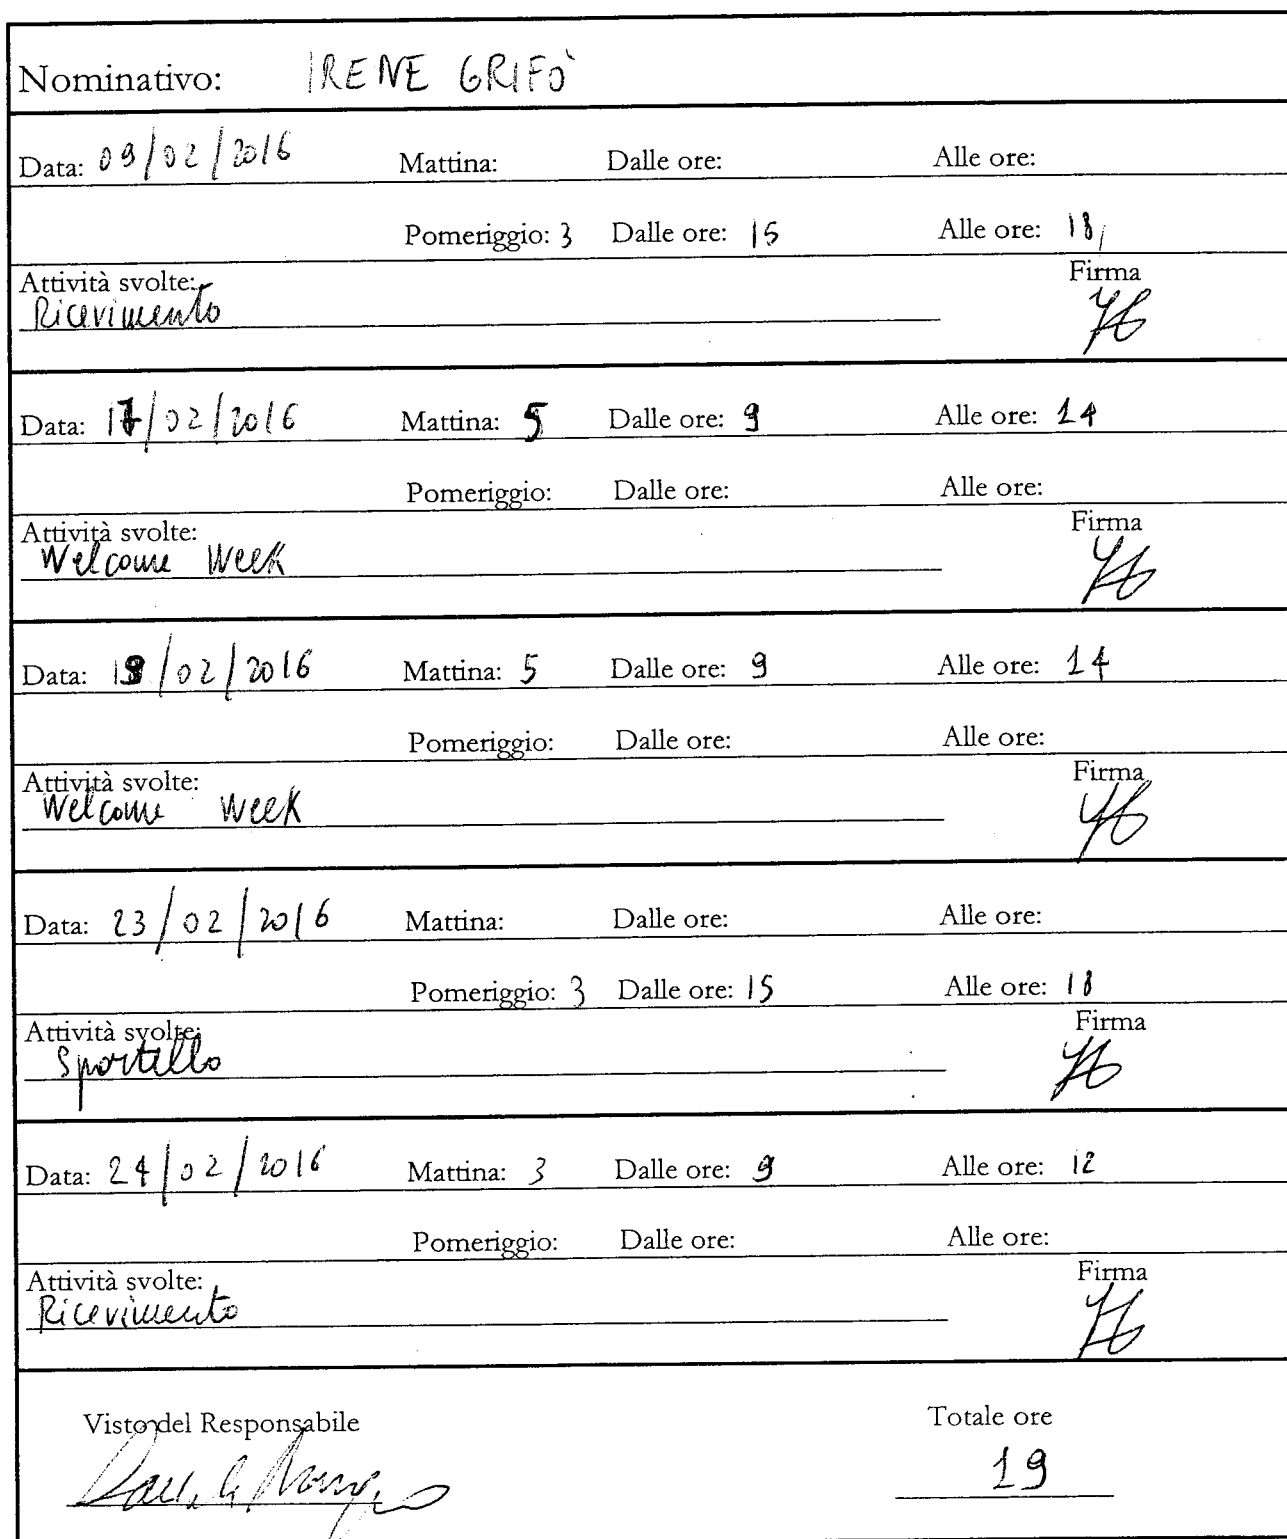 Nominativo: IRENE GRIFÒ
Data: 09/02/2016 Mattina: Dalle ore: Alle ore:
Pomeriggio: 3 Dalle ore: 15 Alle ore: 18
Attività svolte: Firma
Ricevimento
Data: 17/02/2016 Mattina: 5 Dalle ore: 9 Alle ore: 14
Pomeriggio: Dalle ore: Alle ore:
Attività svolte: Firma
Welcome Week
Data: /02/2016 Mattina: 5 Dalle ore: 9 Alle ore: 14
Pomeriggio: Dalle ore: Alle ore:
Attività svolte: Firma
Welcome Week
Data: 23/02/2016 Mattina: Dalle ore: Alle ore:
Pomeriggio: 3 Dalle ore: 15 Alle ore: 18
Attività svolte: Firma
Sportello
Data: 24/02/2016 Mattina: 3 Dalle ore: 9 Alle ore: 12
Pomeriggio: Dalle ore: Alle ore:
Attività svolte: Firma
Ricevimento
Visto del Responsabile Totale ore
19